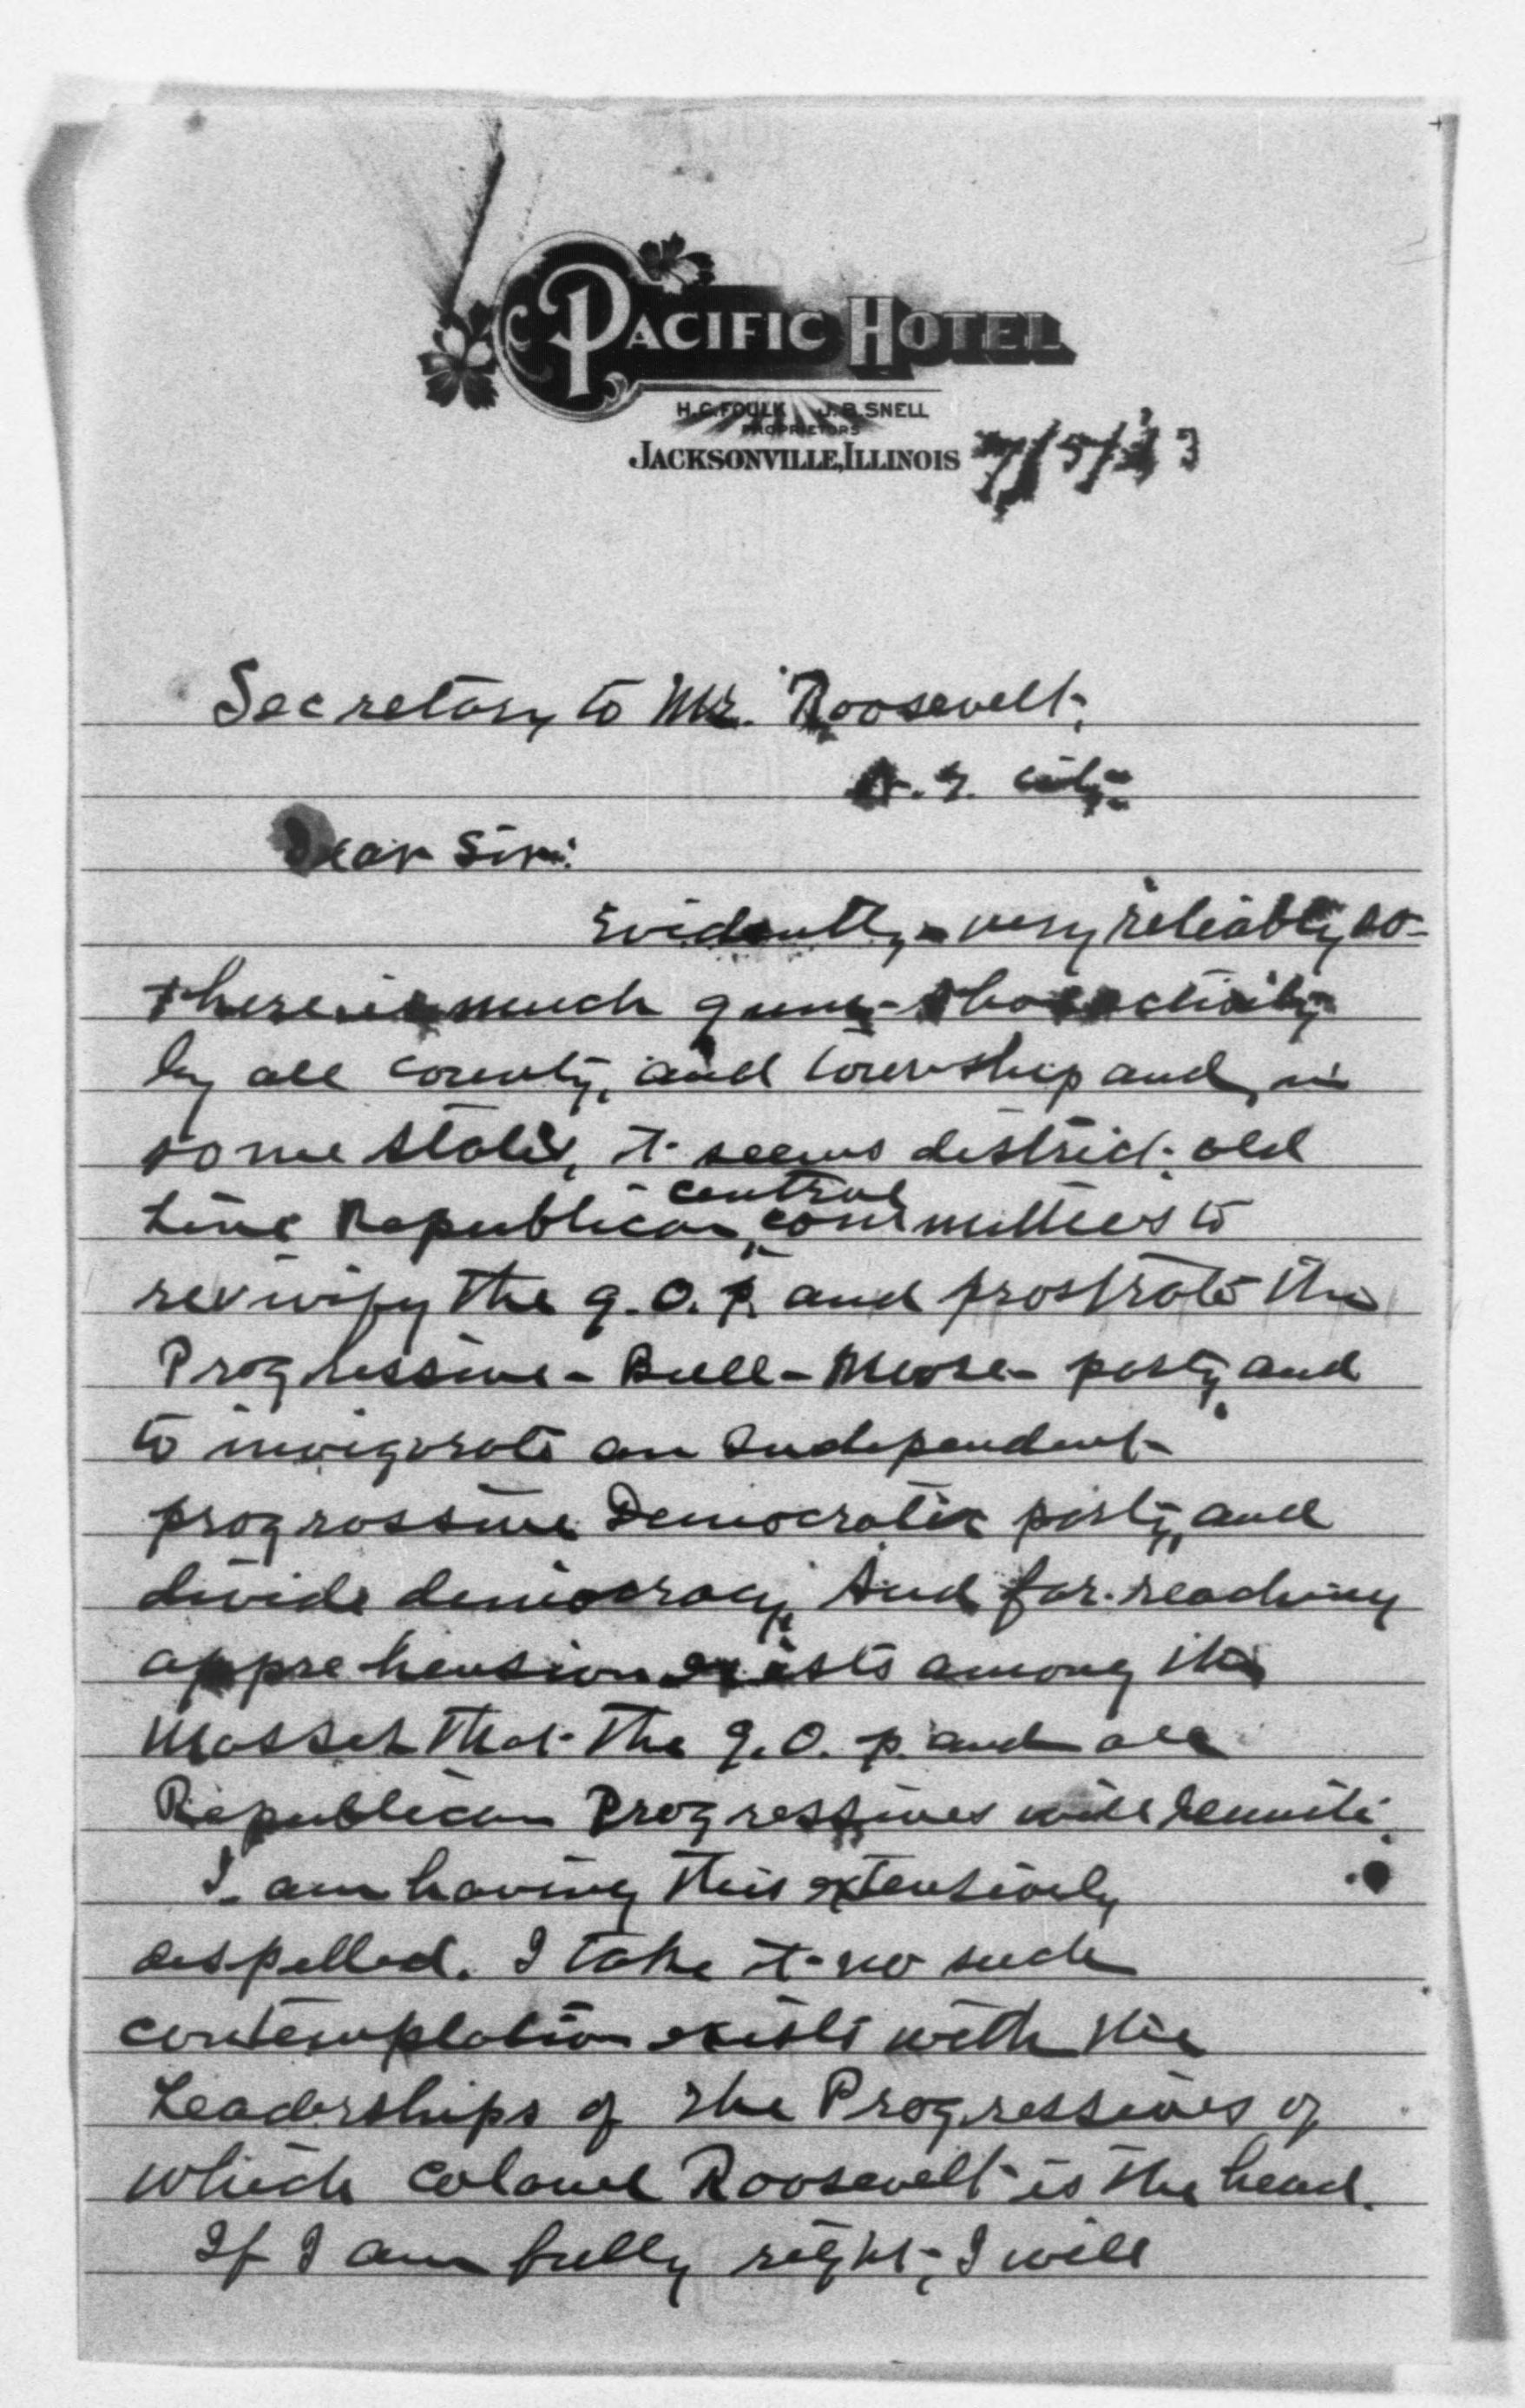 PACIFIC HOTEL
H.C. FOULK J.B. SNELL
PROPRIETORS
JACKSONVILLE, ILLINOIS 7/5/13
Secretary to Mr. Roosevelt,
N.Y. City:
Dear Sir:
Evidently, - very reliably so -
there is much gum-shoe activity
by all county, and township and, in
some states, it seems district old
Line Republican central committees to
revivify the G.O.P. and prostrate the
Progressive - Bull-Moose - party and
to invigorate an Independent
progressive Democratic party, and
divide democracy. And far-reaching
apprehension exists among the
masses that the G.O.P. and all
Republican Progressives will reunite.
I am having this extensively
dispelled. I take it no such
contemplation exists with the
Leaderships of the Progressives of
which Colonel Roosevelt is the head.
If I am fully right, I will